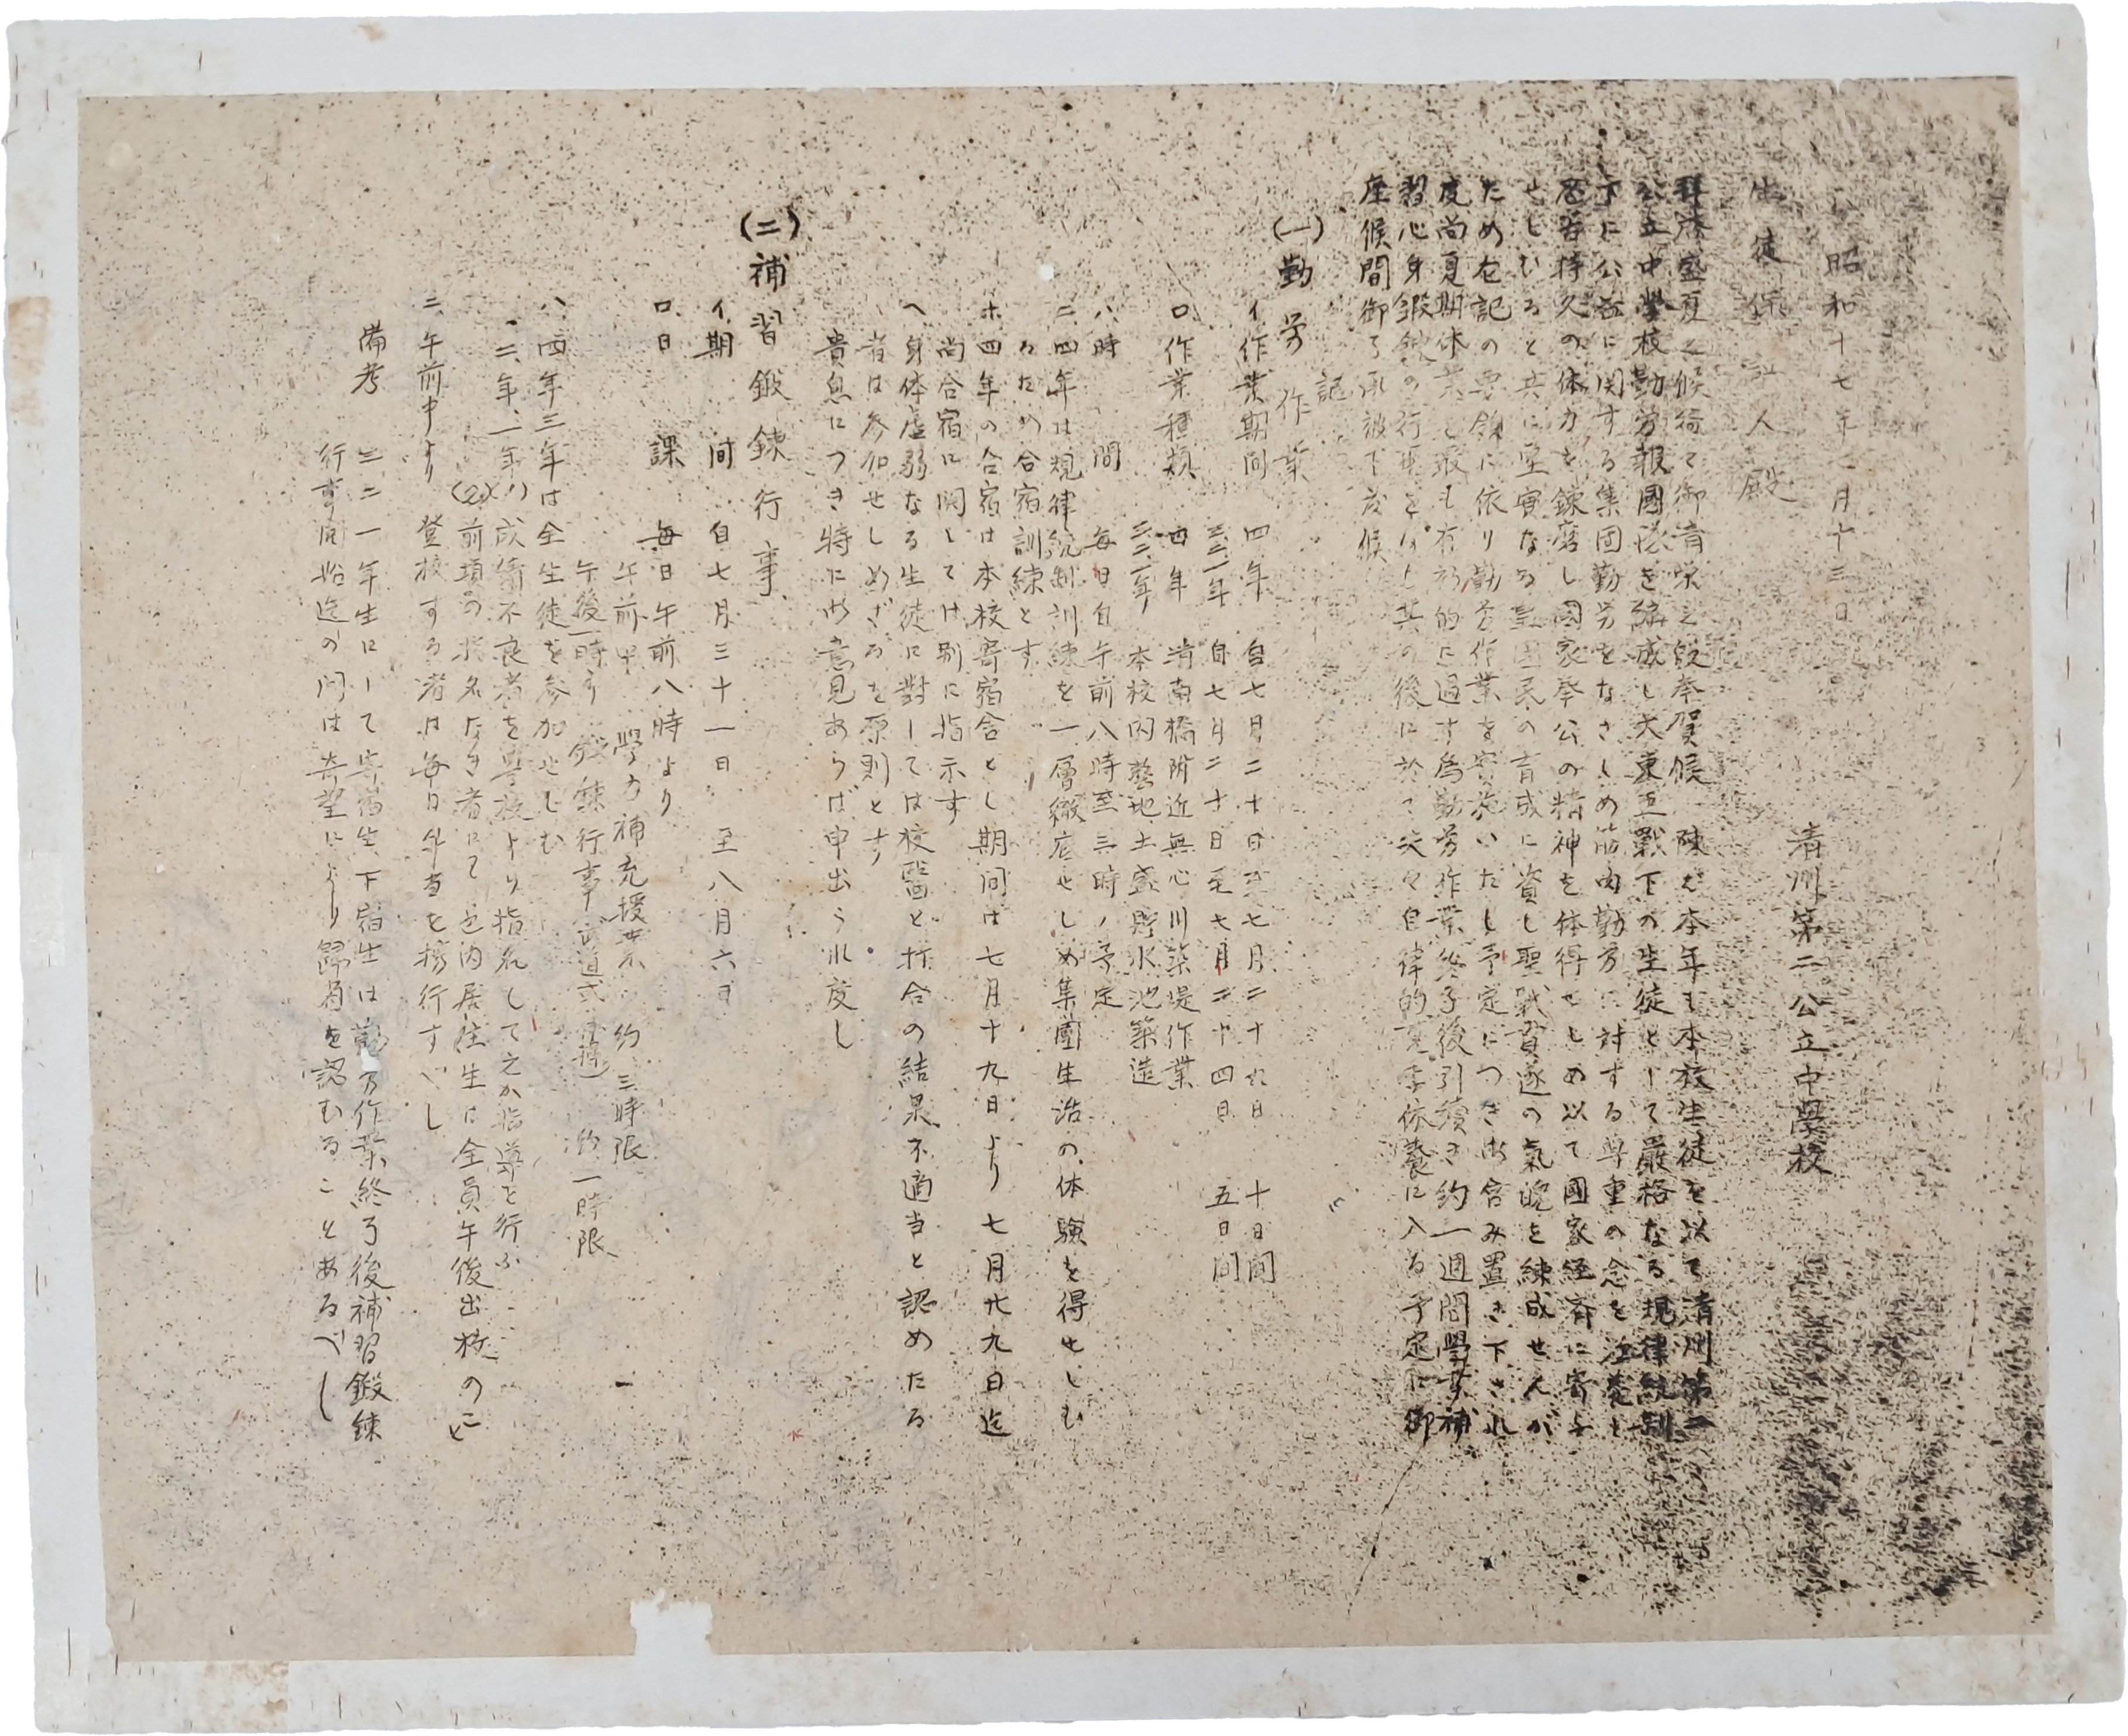 昭和十七年七月十三日
清州第二公立中學校
生徒保証人殿
拜啓盛夏之候愈々御清榮之段奉賀候 陳者本年も本校生徒を以て清州第二
公立中學校勤労報國隊を編成し大東亜戰下の生徒として嚴格なる規律統制
下に公益に関する集団勤労をなさしめ筋肉勤労に対する尊重の念を
忍苦持久の体力を錬磨し國家奉公の精神を体得せしめ以て國家経済に寄与
せしむると共に堅實なる皇國民の育成に資し聖戰貫遂の氣魄を練成せんが
ため左記の要領に依り勤労作業を実施いたし予定につき御含み置き下され
度尚夏期休業を最も有効的に過す為勤労作業終了後引續き約一週間學業補
習心身鍛錬の行事を 共の後に於て夫々自律的 休養に入る予定に御
座候間御了承被下度候
記
(一)勤労作業
イ、作業期間 四年 自七月二十日至七月二十九日 十日間
三二一年 自七月二十日至七月二十四日 五日間
ロ、作業種類 四年 清南橋附近無心川築堤作業
三二一年 本校内敷地土盛貯水池築造
ハ、時間 毎日自午前八時至三時ノ予定
ニ、四年は規律統制訓練を一層徹底せしめ集團生活の体驗を得せしむ
るため合宿訓練とす
ホ、四年の合宿は本校寄宿舎とし期間は七月十九日より七月廿九日迄
尚合宿に関しては別に指示す
ヘ、身体虚弱なる生徒に對しては校醫と打合の結果不適当と認めたる
者は参加せしめざるを原則とす
貴息につき特に御意見あらば申出られ度し
(二)補習鍛錬行事
イ、期間 自七月三十一日 至八月六日
ロ、日課 毎日午前八時より
午前中 學力補充授業 約三時限
午後一時より 鍛錬行事(武道式体操) 約一時限
ハ、四年三年は全生徒を参加せしむ
二年、一年(1)成績不良者を學校より指名して之が指導を行ふ
(2)前項の指名なき者にて邑内居住生は全員午後出校のこと
ニ、午前中より登校する者は毎日弁当を携行すべし
備考 三二一年生にして寄宿生、下宿生は勤労作業終了後補習鍛錬
行事開始迄の間は希望により歸省を認むることあるべし